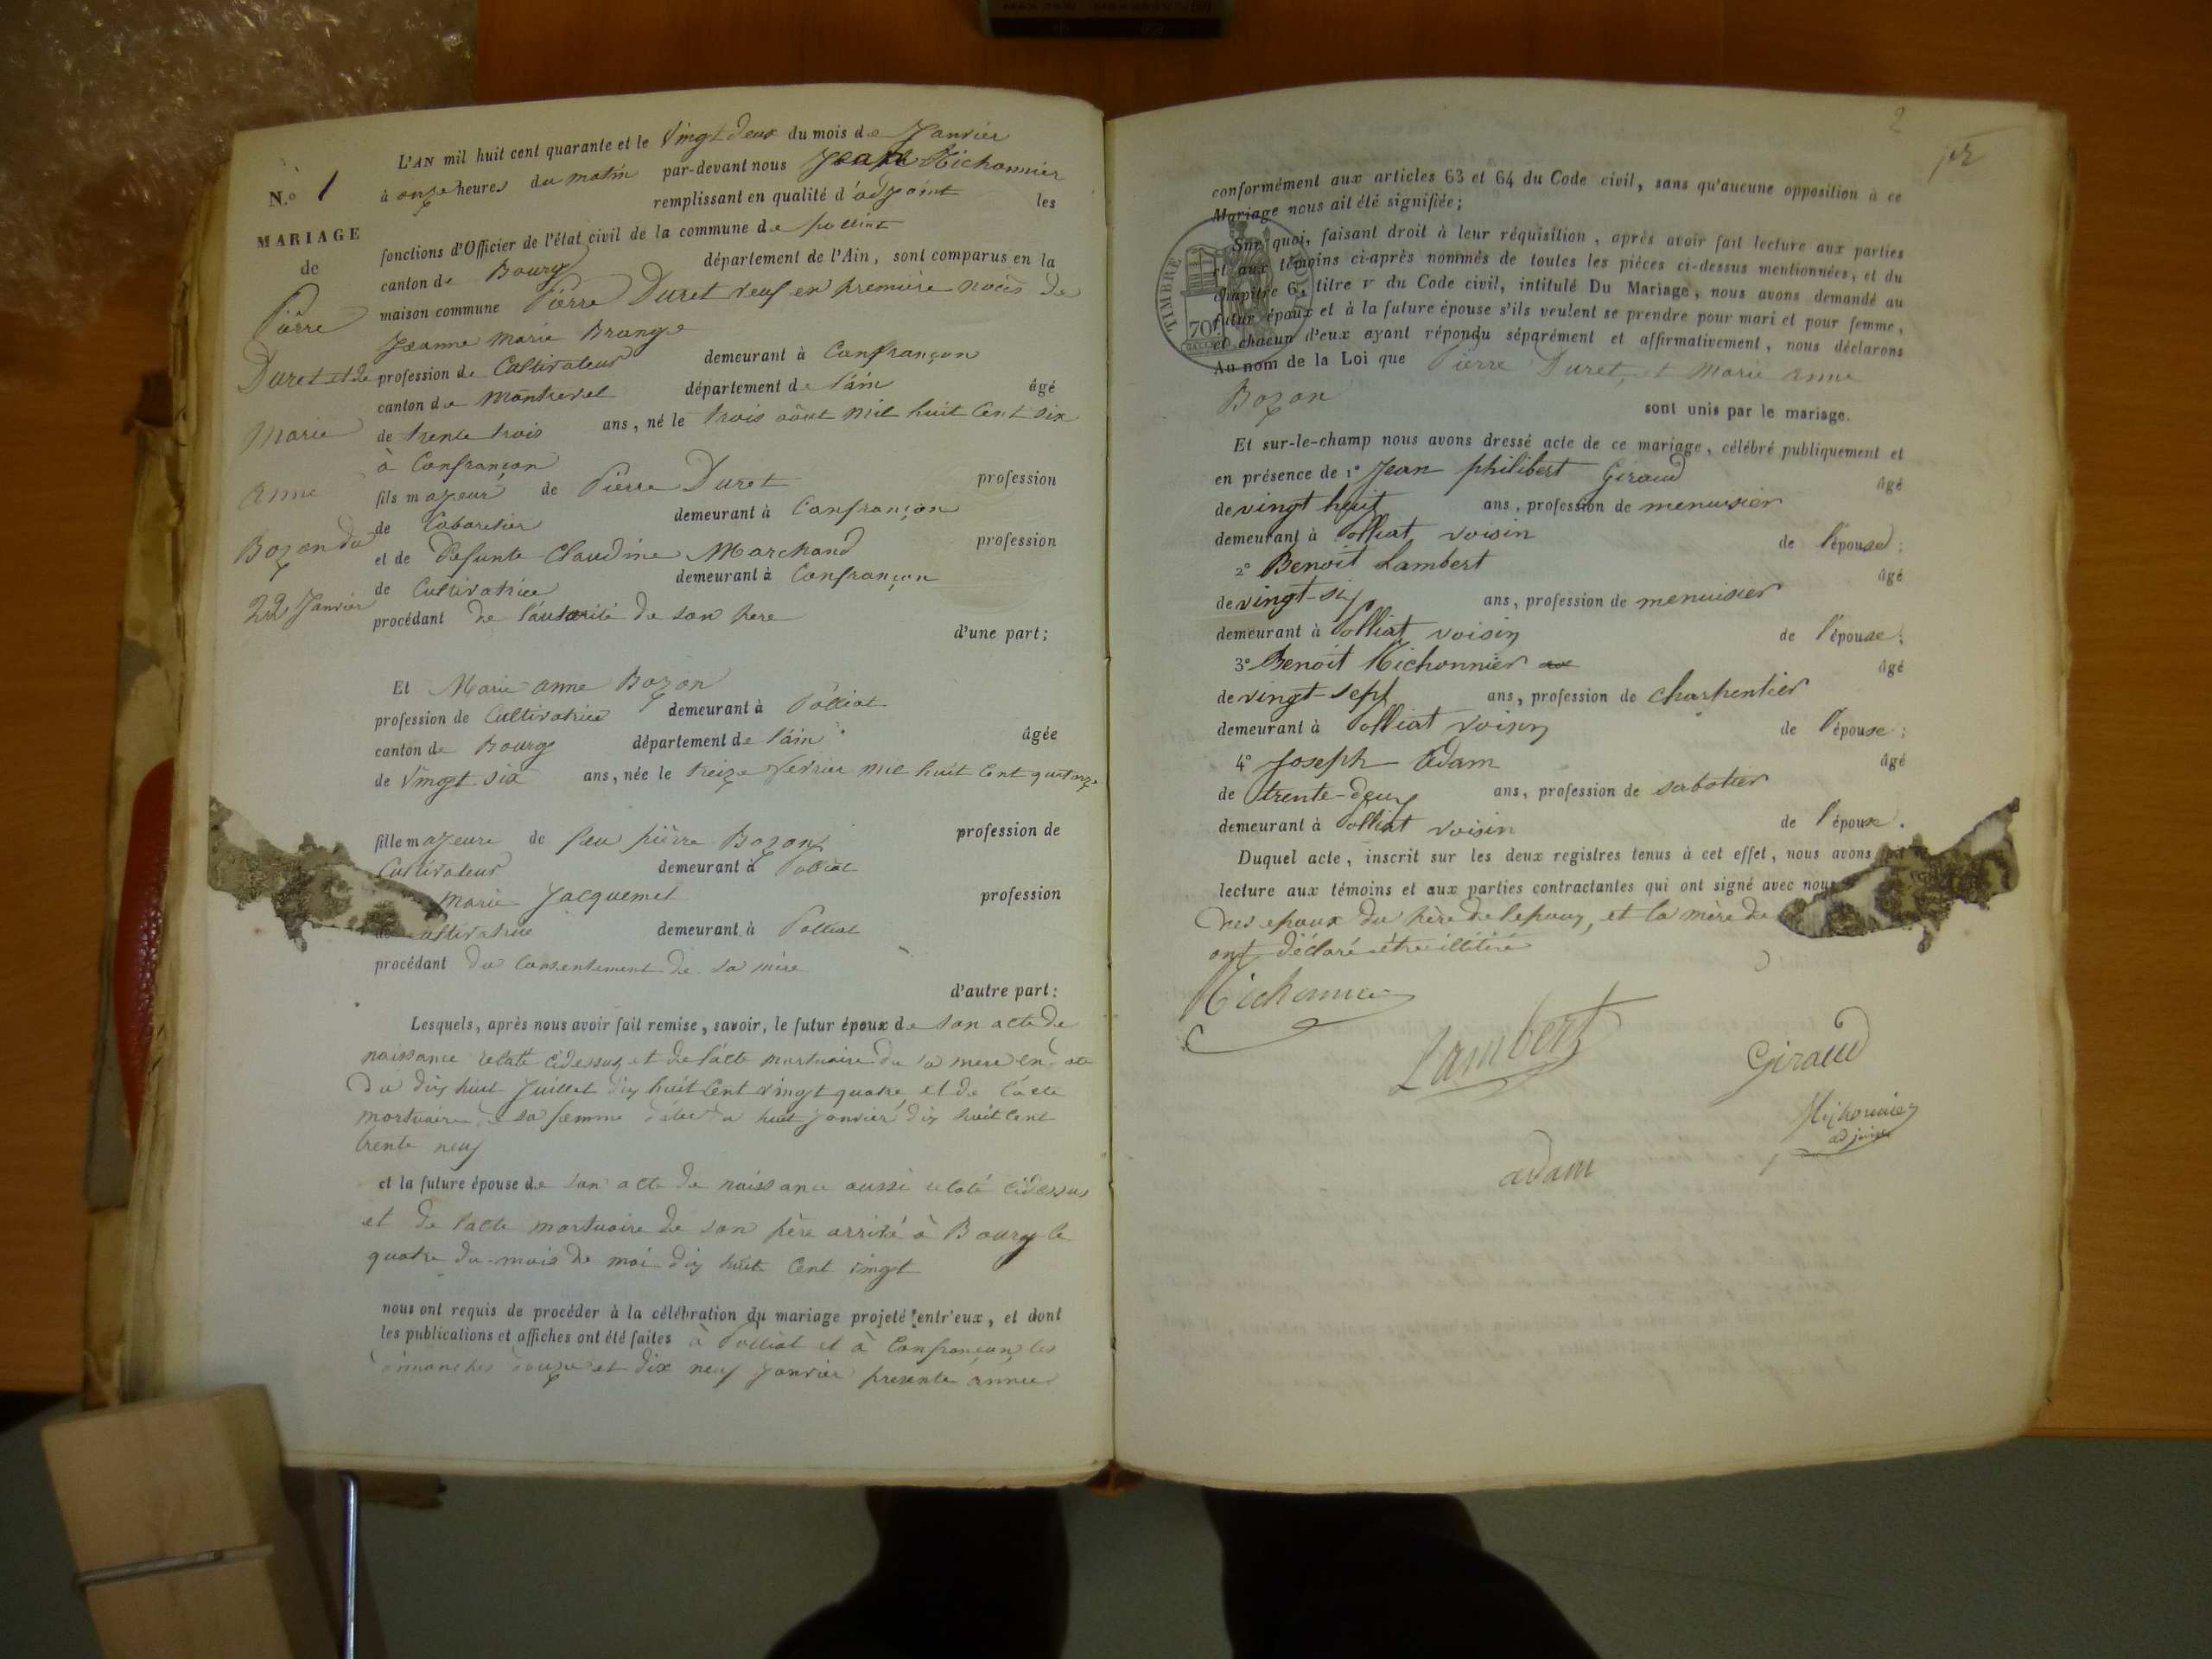 L'AN mil huit cent quarante et le Vingt deux du mois de Janvier
à onze heures du matin par-devant nous Jean Michonnier
remplissant en qualité d'adjoint les
fonctions d'Officier de l'état civil de la commune de polliat
canton de Bourg département de l'Ain, sont comparus en la
maison commune Pierre Duret veuf en première noces de
Jeanne Marie Brange
profession de Cultivateur demeurant à Confrançon
canton de Montrevel département de l'ain âgé
de trente trois ans, né le trois aôut mil huit Cent six
à Confrançon
fils majeur de Pierre Duret profession
de Cabaretier demeurant à Confrançon
et de Defunte Claudine Marchand profession
de Cultivatrice demeurant à Confrançon
procédant de l'autorité de son pere
d'une part;
N.o 1
MARIAGE
de
Pierre
Duret et de
Marie
anne
Bozon du
22 Janvier
Et Marie anne Bozon
profession de Cultivatrice demeurant à Polliat
canton de Bourg département de l'ain âgée
de Vingt six ans, née le treize fevrier mil huit Cent quatorze
fille majeure de feu pierre Bozon profession de
Cultivateur demeurant à Polliat
Marie Jacquemet profession
de cultivatrice demeurant à Polliat
procédant du Consentement de sa mère
d'autre part:
Lesquels, après nous avoir fait remise, savoir, le futur époux de son acte de
naissance relaté cidessus et de l'acte mortuaire de sa mere en date
du dix huit Juillet dix huit Cent vingt quatre et de l'acte
mortuaire de sa femme datée du huit janvier dix huit Cent
trente neuf
et la future épouse de son acte de naissance aussi relaté cidessus
et de l'acte mortuaire de son père arrivé à Bourg le
quatre du mois de mai dix huit Cent vingt
nous ont requis de procéder à la célébration du mariage projeté entr'eux, et dont
les publications et affiches ont été faites à Polliat et à Confrançon les
dimanches douze et dix neuf Janvier presente année
2
conformément aux articles 63 et 64 du Code civil, sans qu'aucune opposition à ce
Mariage nous ait été signifiée;
Sur quoi, faisant droit à leur réquisition, après avoir fait lecture aux parties
et aux témoins ci-après nommés de toutes les pièces ci-dessus mentionnées, et du
chapitre 6, titre v du Code civil, intitulé Du Mariage, nous avons demandé au
futur époux et à la future épouse s'ils veulent se prendre pour mari et pour femme,
et chacun d'eux ayant répondu séparément et affirmativement, nous déclarons
Au nom de la Loi que Pierre Duret, et Marie anne
Bozon
sont unis par le mariage.
TIMBRE
70
Et sur-le-champ nous avons dressé acte de ce mariage, célébré publiquement et
en présence de 1° Jean philibert Giraud âgé
de vingt huit ans, profession de menuisier
demeurant à Polliat voisin de l'épouse;
2° Benoit Lambert âgé
de vingt-six ans, profession de menuisier
demeurant à Polliat voisin de l'épouse;
3° Benoit Michonnier âgé
de vingt-sept ans, profession de charpentier
demeurant à Polliat voisin de l'épouse;
4° Joseph Adam âgé
de trente-deux ans, profession de sabotier
demeurant à Polliat voisin de l'épouse.
Duquel acte, inscrit sur les deux registres tenus à cet effet, nous avons fait
lecture aux témoins et aux parties contractantes qui ont signé avec nous
les epoux du père de lepoux, et la mère de
ont déclaré être illitéré
Michonnier
Lambert
Giraud
Michonnier
adjoint
adam